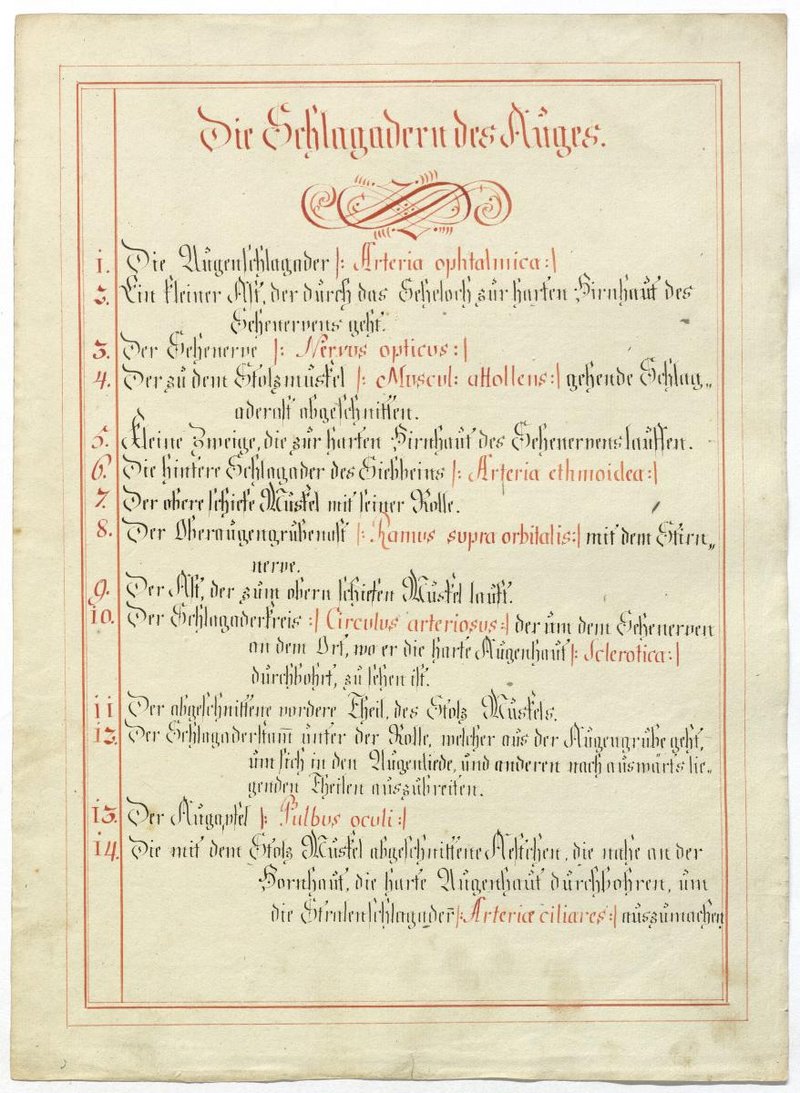 Die Schlagadern des Auges.
1. Die Augenschlagader |: Arteria ophtalmica :|
2. Ein kleiner Ast, der durch das Seheloch zur harten Hirnhaut des
Sehenervens geht.
3. Der Sehenerve |: Nervus opticus :|
4. Der zu dem Stolzmuskel |: Muscul: attollens :| gehende Schlag„
aderast abgeschnitten.
5. Kleine Zweige, die zur harten Hirnhaut des Sehenervens lauffen.
6. Die hintere Schlagader des Siebbeins |: Arteria ethmoidea :|
7. Der obere schiefe Muskel mit seiner Rolle.
8. Der Oberaugengrubenast |: Ramus supra orbitalis :| mit dem Stirn„
nerve.
9. Der Ast, der zum obern schiefen Muskel lauft.
10. Der Schlagaderkreis :| Circulus arteriosus :| der um dem Sehenerven
an dem Ort, wo er die harte Augenhaut |: Sclerotica :|
durchbohrt, zu sehen ist.
11 Der abgeschnittene vordere Theil, des Stolz Muskels.
12. Der Schlagaderstam̅ unter der Rolle, welcher aus der Augengrube geht,
um sich in den Augenliede, und anderen nach auswärts lie„
genden Theilen auszubreiten.
13. Der Augapfel |: Bulbus oculi :|
14. Die mit dem Stolz Muskel abgeschnittene Aestchen, die nahe an der
Hornhaut, die harte Augenhaut durchbohren, um
die Stralenschlagadern̅ |: Arteriæ ciliares :| auszumachen